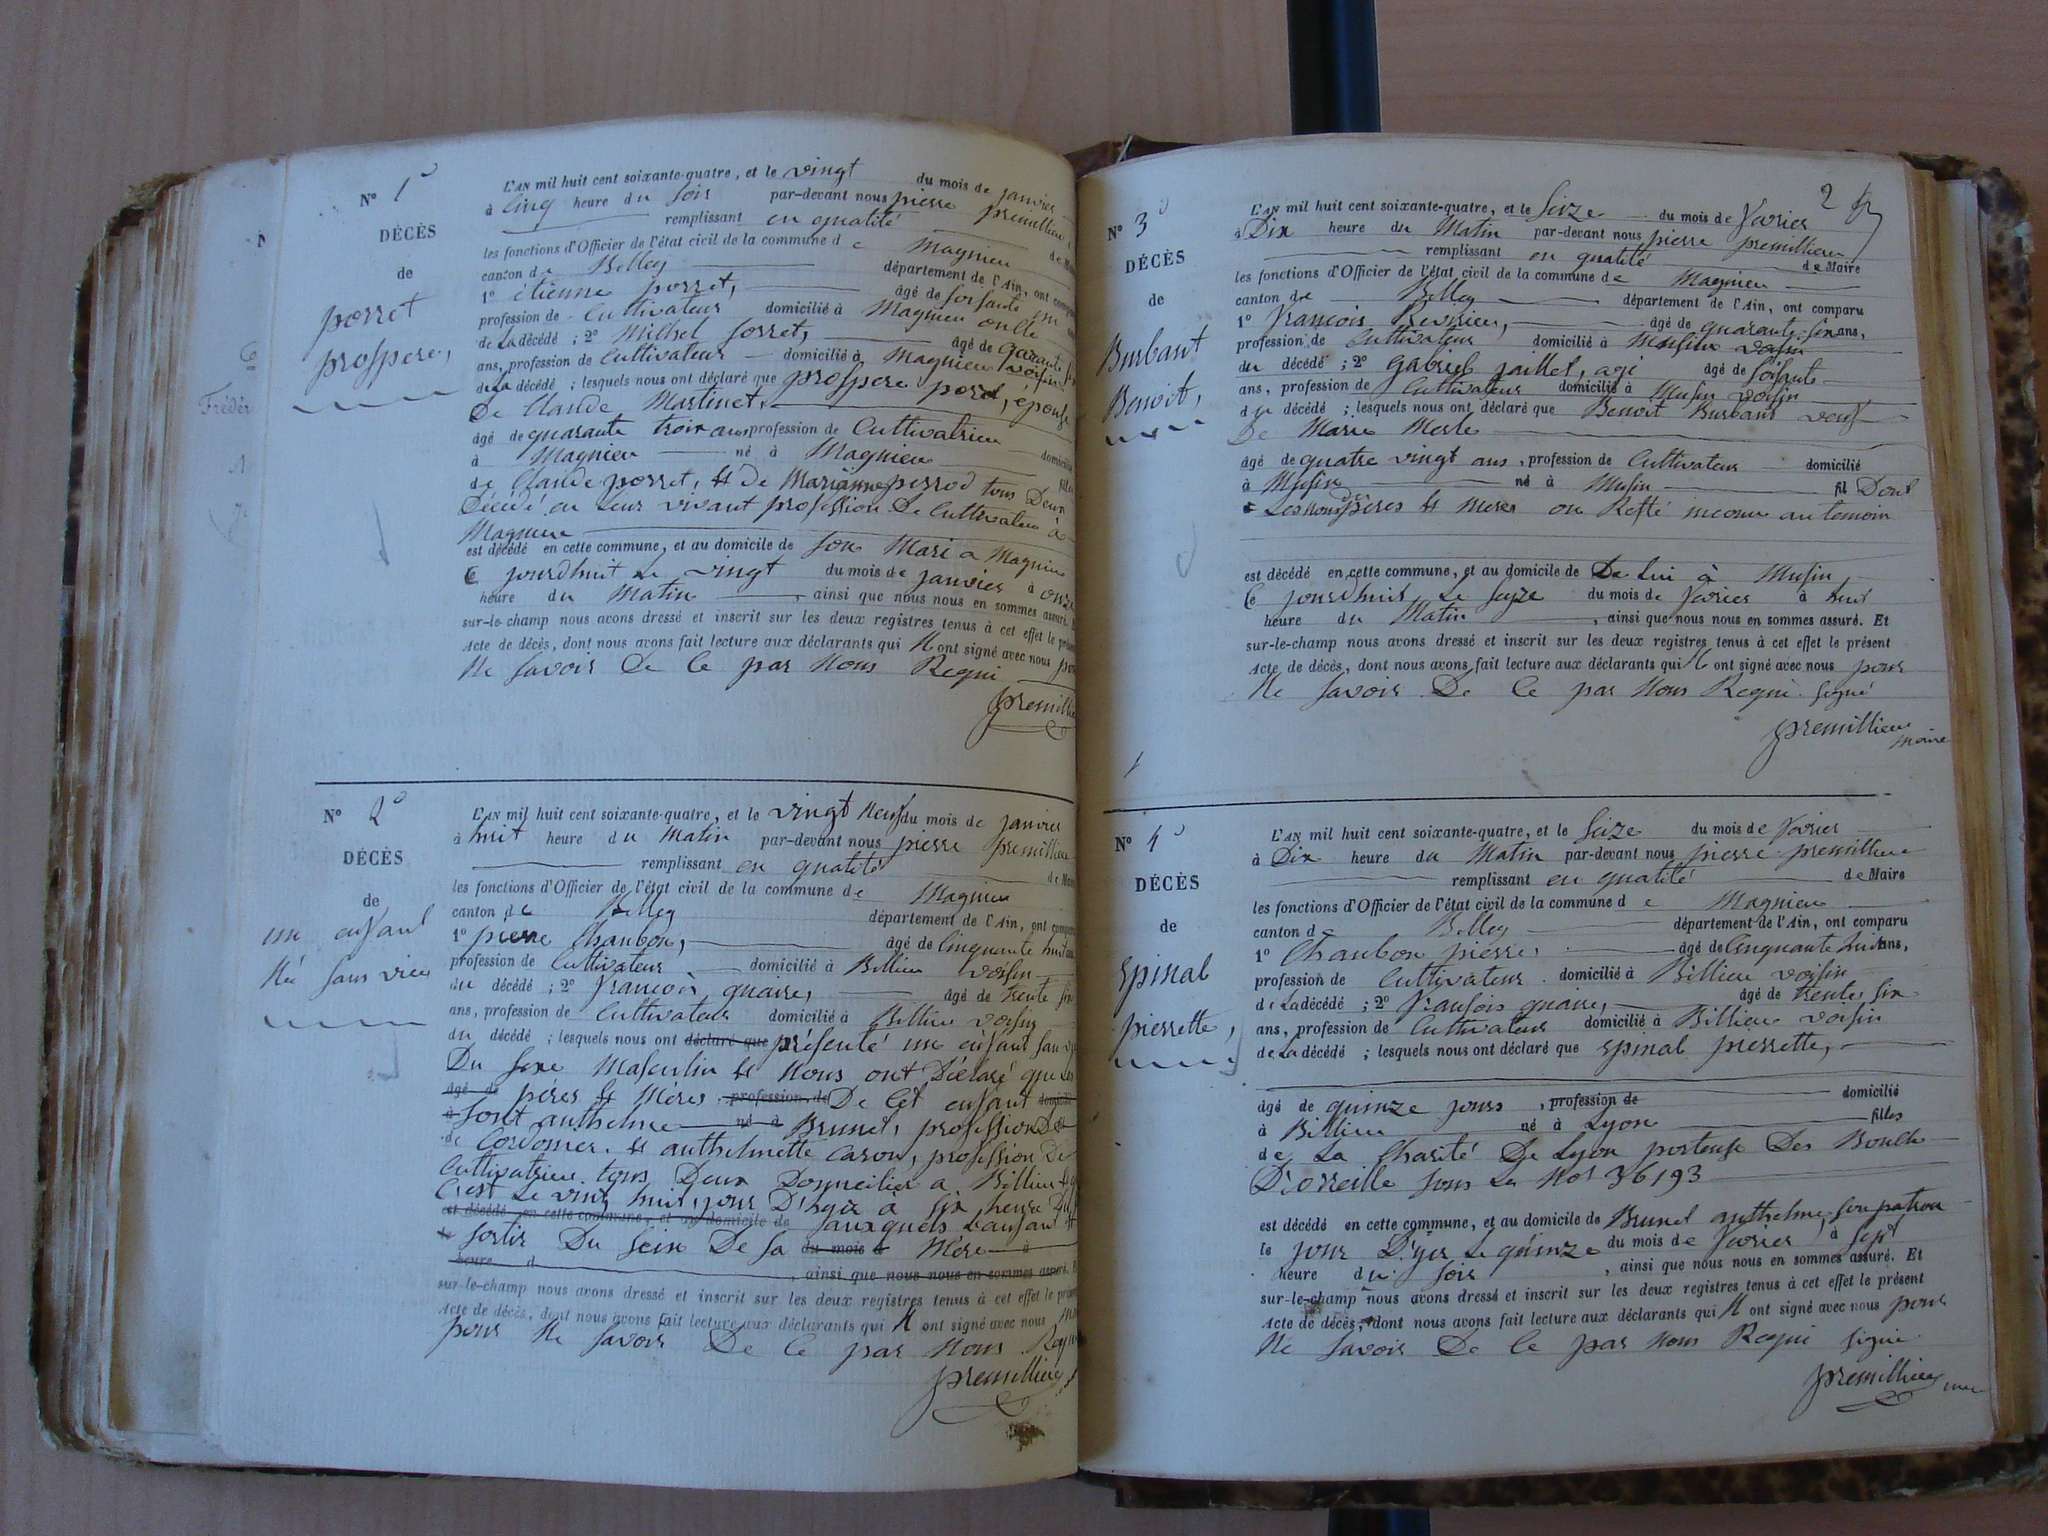 N° 1
DÉCÈS
de
porret
prospere,
L'AN mil huit cent soixante-quatre, et le vingt du mois de janvier
à cinq heure du soir par-devant nous pierre premillieu
remplissant en qualité de
les fonctions d'Officier de l'état civil de la commune de Magnieu
canton de Belley département de l'Ain, ont
1° étienne porret, âgé de soisante
profession de Cultivateur domicilié à Magnieu oncle
de La décédé ; 2° Milhel Sorret, âgé de
ans, profession de Cultivateur domicilié à Magnieu voisin
de La décédé ; lesquels nous ont déclaré que prospere porret, épouse
De Claude Martinet,
âgé de quarante trois ans profession de Cultivatrice
à Magnieu né à Magnieu domicilié
de Claude porret, et De Marianne perrod tous Deux
Décédé en leur vivant profession De Cultivateur à
Magnieu
est décédé en cette commune, et au domicile de son Mari a Magnieu
Ce jourdhuit Le vingt du mois de janvier à onze
heure du Matin , ainsi que nous nous en sommes assuré.
sur-le-champ nous avons dressé et inscrit sur les deux registres tenus à cet effet le
Acte de décès, dont nous avons fait lecture aux déclarants qui N ont signé avec nous
Ne savoir De Ce par Nous Requi
N° 2
DÉCÈS
de
un enfant
Né sans vie
L'AN mil huit cent soixante-quatre, et le vingt Neuf du mois de janvier
à huit heure du Matin par-devant nous pierre premillieu
remplissant en qualité de
les fonctions d'Officier de l'état civil de la commune de Magnieu
canton de Belley département de l'Ain, ont
1° pierre Chanbon, âgé de Cinquante huit
profession de Cultivateur domicilié à Billieu voisin
du décédé ; 2° françois quaire, âgé de trente six
ans, profession de Cultivateur domicilié à Billieu voisin
du décédé ; lesquels nous ont déclaré que présenté un enfant san
Du Sexe Masculin et Nous ont Déclaré que
âgé de péres et Méres profession de De Cet enfant
à Sont anthelme né à Brunet, profession De
de Cordonier et anthelmette Caron, profession De
Cultivatrice tous Deux Domicilier a Billieu
C'est Le vingt huit jour D'hyer à six heure Du
est décédé en cette commune, et au domicile de
sortir Du Sein De Sa du mois Mére à
heure d , ainsi que nous nous en sommes assuré.
sur-le-champ nous avons dressé et inscrit sur les deux registres tenus à cet effet le
Acte de décès, dont nous avons fait lecture aux déclarants qui N ont signé avec nous
pour Ne savoir De Ce par Nous
premillieu
2
N° 3
DÉCÈS
de
Burbant
Benoit,
L'AN mil huit cent soixante-quatre, et le Seize du mois de fevrier
à Dix heure du Matin par-devant nous pierre premillieu
remplissant en qualité de Maire
les fonctions d'Officier de l'état civil de la commune de Magnieu
canton de Belley département de l'Ain, ont comparu
1° françois âgé de quarante six ans,
profession de Cultivateur domicilié à Musin voisin
du décédé ; 2° gabriel paillet, agé âgé de soisante
ans, profession de Cultivateur domicilié à Musin voisin
du décédé ; lesquels nous ont déclaré que Benoit Burbant veuf
De Marie Merle
âgé de quatre vingt ans , profession de Cultivateur domicilié
à Musin né à Musin fil Dont
Les Noms péres et meres on Resté inconu au temoin
est décédé en cette commune, et au domicile de De Lui à Musin
Ce jourdhuit Le seize du mois de fevrier à huit
heure du Matin , ainsi que nous nous en sommes assuré. Et
sur-le-champ nous avons dressé et inscrit sur les deux registres tenus à cet effet le présent
Acte de décès, dont nous avons fait lecture aux déclarants qui N ont signé avec nous pour
Ne savoir De Ce par Nous Requi signé
premillieu
maire
N° 4
DÉCÈS
de
Spinal
pierrette,
L'AN mil huit cent soixante-quatre, et le Seize du mois de fevrier
à Dix heure du Matin par-devant nous pierre premillieu
remplissant en qualité de Maire
les fonctions d'Officier de l'état civil de la commune de Magnieu
canton d Belley département de l'Ain, ont comparu
1° Chanbon pierre, âgé de Cinquante huit ans,
profession de Cultivateur domicilié à Billieu voisin
de La décédé ; 2° fransois quaire, âgé de trente six
ans, profession de Cultivateur domicilié à Billieu voisin
de La décédé ; lesquels nous ont déclaré que Spinal pierrette,
âgé de quinze jours , profession de domicilié
à Billieu né à Lyon filles
de La Charité De Lyon porteuse Des Boucle
D'orreille sous Le No 36193
est décédé en cette commune, et au domicile de Brunet anthelme, son patron
le jour D'yer Le quinze du mois de fevrier à sept
heure du soir , ainsi que nous nous en sommes assuré. Et
sur-le-champ nous avons dressé et inscrit sur les deux registres tenus à cet effet le présent
Acte de décès, dont nous avons fait lecture aux déclarants qui N ont signé avec nous pour
Ne savoir De Ce par Nous Requi signé
premillieu